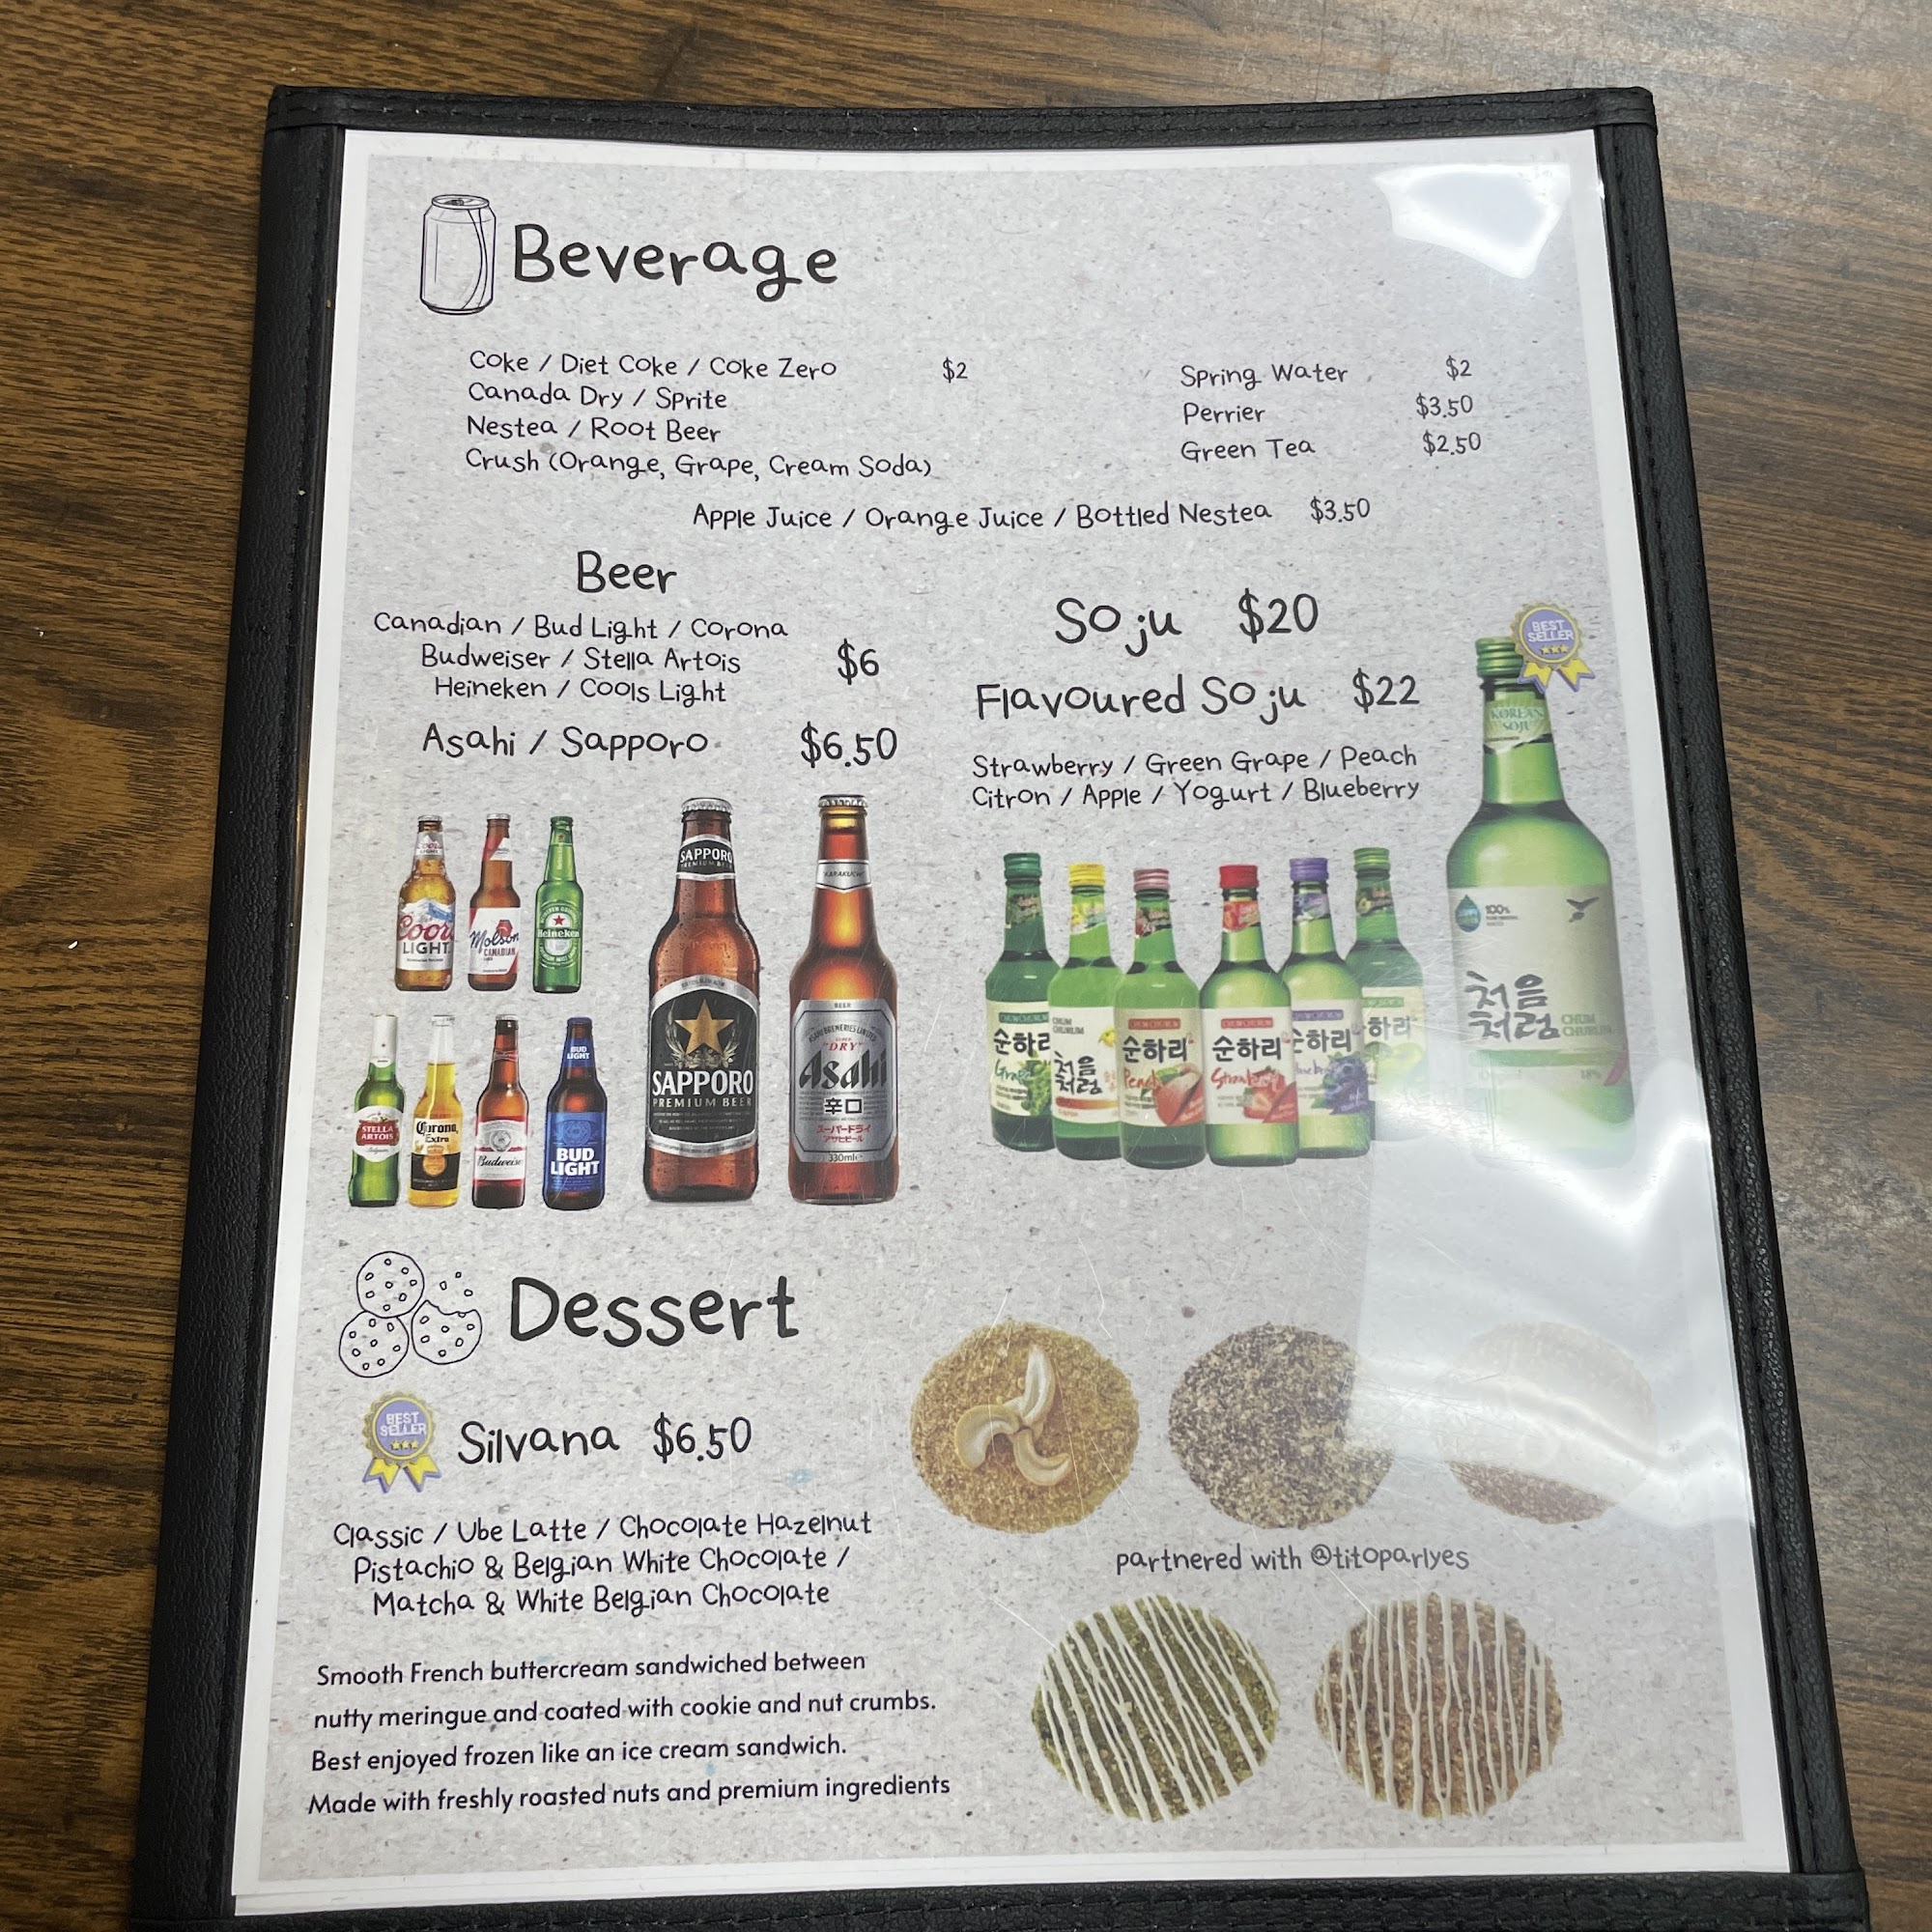 Beverage
Coke / Diet Coke / Coke Zero $2
Canada Dry / Sprite
Nestea / Root Beer
Crush (Orange, Grape, Cream Soda)
Spring Water $2
Perrier $3.50
Green Tea $2.50
Apple Juice / Orange Juice / Bottled Nestea $3.50
Beer
Canadian / Bud Light / Corona
Budweiser / Stella Artois $6
Heineken / Cools Light
Asahi / Sapporo $6.50
Soju $20
Flavoured Soju $22
Strawberry / Green Grape / Peach
Citron / Apple / Yogurt / Blueberry
BEST
SELLER
KOREAN
SOJU
100%
처음
처럼
CHUM
CHURUM
18%
Coors
LIGHT
Molson
CANADIAN
Heineken
STELLA
ARTOIS
Corona
Extra
Budweiser
BUD
LIGHT
BUD
LIGHT
SAPPORO
PREMIUM BEER
SAPPORO
PREMIUM BEER
KARAKUCHI
BEER
"DRY"
Asahi
辛口
スーパードライ
アサヒビール
330ml
순하리
Grape
CHUM
CHURUM
처음
처럼
순하리
Peach
순하리
Strawberry
순하리
하리
Dessert
BEST
SELLER
Silvana $6.50
Classic / Ube Latte / Chocolate Hazelnut
Pistachio & Belgian White Chocolate /
Matcha & White Belgian Chocolate
partnered with @titoparlyes
Smooth French buttercream sandwiched between
nutty meringue and coated with cookie and nut crumbs.
Best enjoyed frozen like an ice cream sandwich.
Made with freshly roasted nuts and premium ingredients